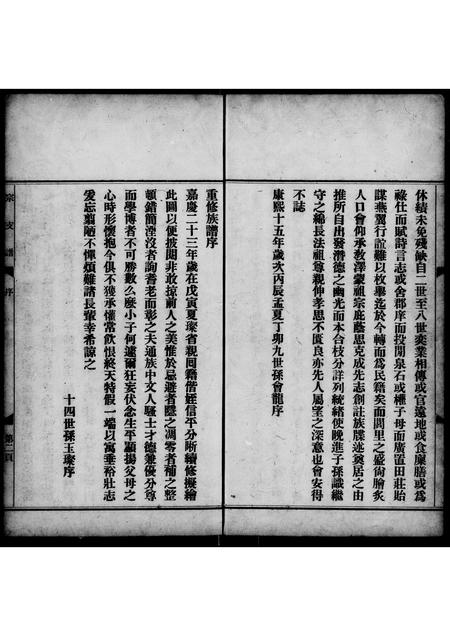 休績未免殘缺自二世至八世奕業相傳或官遠地或食廩膳或為
祿仕而賦詩言志或舍郡庠而投閒泉石或權子母而廣置田莊貽
謀燕翼行誼難以枚舉迄於今轉而為民籍矣而閭里之盛尚膾炙
人口會仰承教澤蒙祖宗庇蔭思克成先志創註族牒述奠居之由
推所自出發潛德之幽光而本合枝分詳列統緒使晚進子孫識繼
守之綿長法祖尊親伸孝思不匱良亦先人屬望之深意也會安得
不誌
康熙十五年歲次丙辰孟夏丁卯九世孫會龍序
重修族譜序
嘉慶二十三年歲在戊寅夏璨省親囘籍偕姪信平分晰續修擬繪
此圖以便披閱非敢掠前人之美惟於忌避者隱之凋零者補之整
頓錯簡湮沒者詢耆老而彰之夫通族中文人騷士才德兼優分尊
而學博者不可勝數么麼小子何遽爾狂妄伏念生平顯揚父母之
心時形懷抱今俱不獲承懽常飲恨終天特假一端以寓垂裕壯志
爰忘翦陋不憚煩難諸長輩幸希諒之
十四世孫玉璨序
宗支譜
序
第二頁